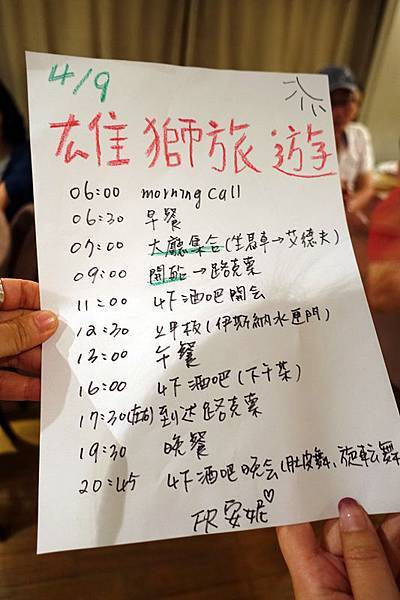 4/9
雄獅旅遊
06:00 morning call
06:30 早餐
07:00 大廳集合(坐馬車→艾德夫)
09:00 開船→路克索
11:00 4F酒吧開会
12:30 甲板(伊斯納水閘門)
13:00 午餐
16:00 4F酒吧(下午茶)
17:30(左右)到达路克索
19:30 晚餐
20:45 4F酒吧晚会(肚皮舞、旋転舞
FR安妮♡